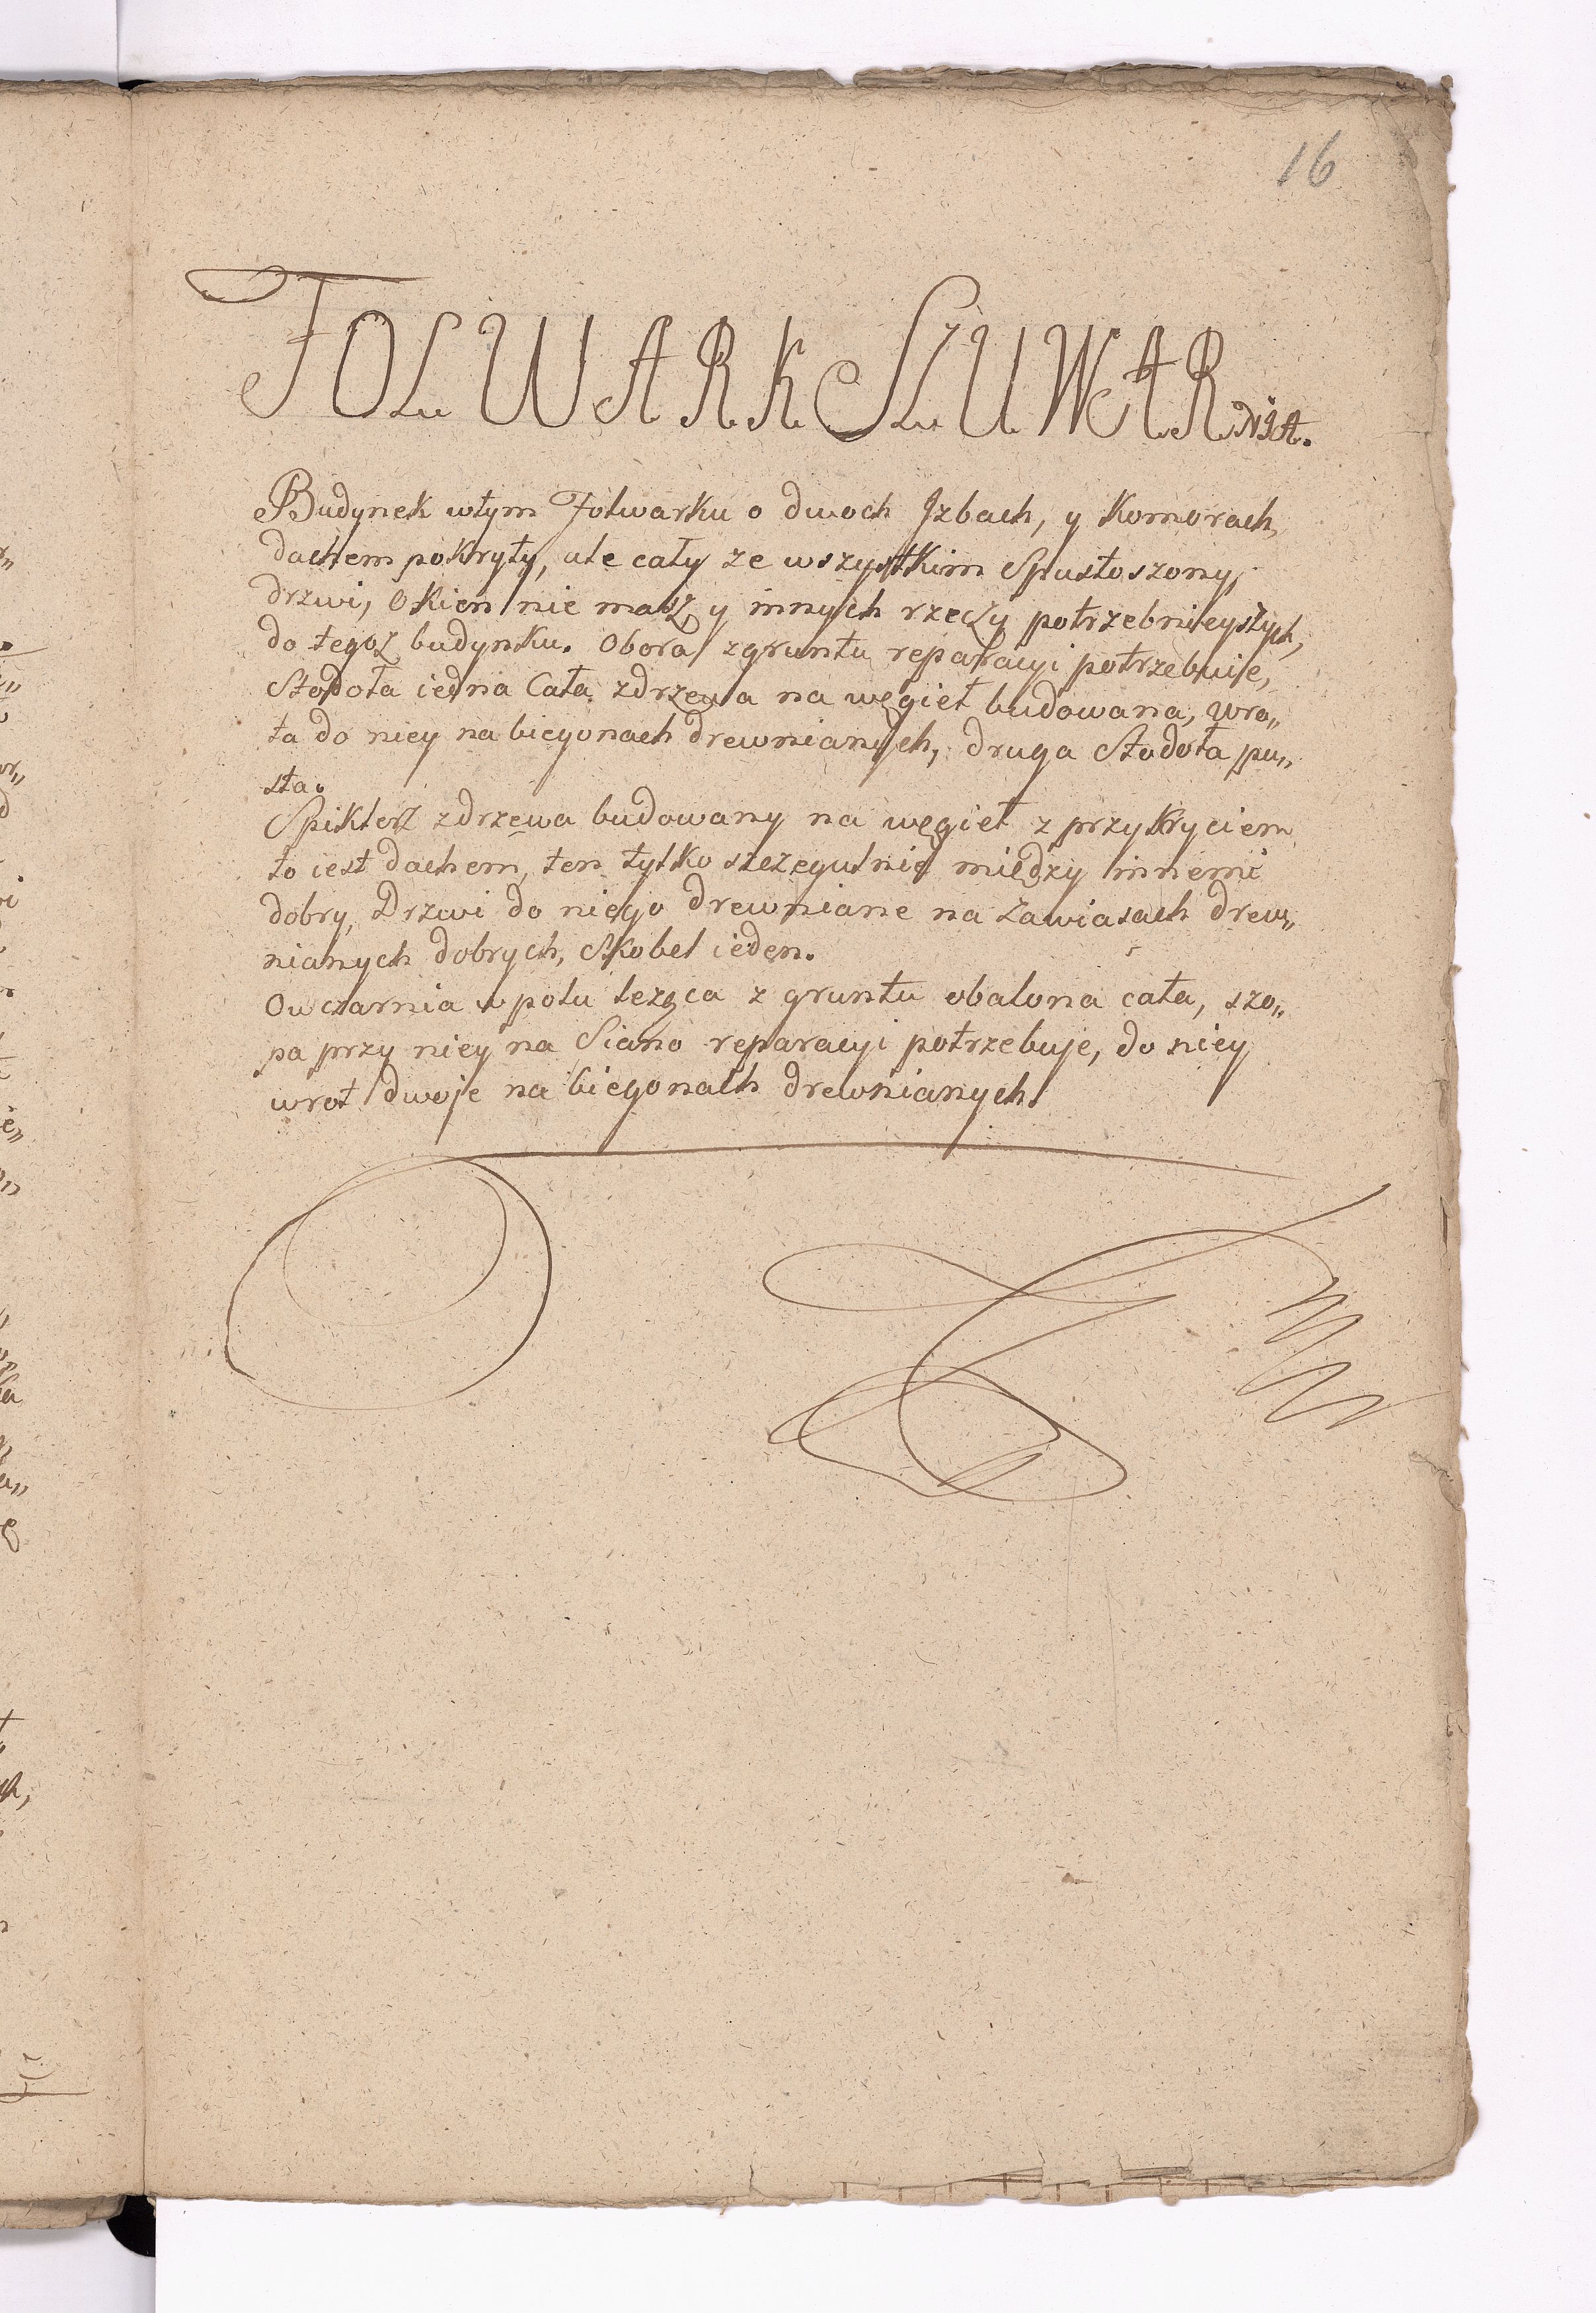 16
FOLWARK SLUWARNIA.
Budynek wtym Folwarku o dwoch Jzbach, y Komorach
dachem pokryty, ale cały ze wszystkim Spustoszony,
drzwi, Okien nie masz y innych rzeczy potrzebnieyszych,
do tegoż budynku. Obora zgruntu reparacyi potrzebuie,
Stodoła iedna Cała zdrzewa na węgieł budowana, wro„
ta do niey na biegonach drewnianych, druga Stodoła pu„
sta.
Spiklerz zdrzewa budowany na węgieł z przykryciem
to iest dachem, ten tylko szczegulnie między innemi
dobry, Drzwi do niego drewniane na Zawiasach drew„
nianych dobrych, Skobel ieden.
Owczarnia w polu leżąca z gruntu obalona cała, szo„
pa przy niey na Siano reparacyi potrzebuje, do niey
wrot dwoje na biegonach drewnianych.